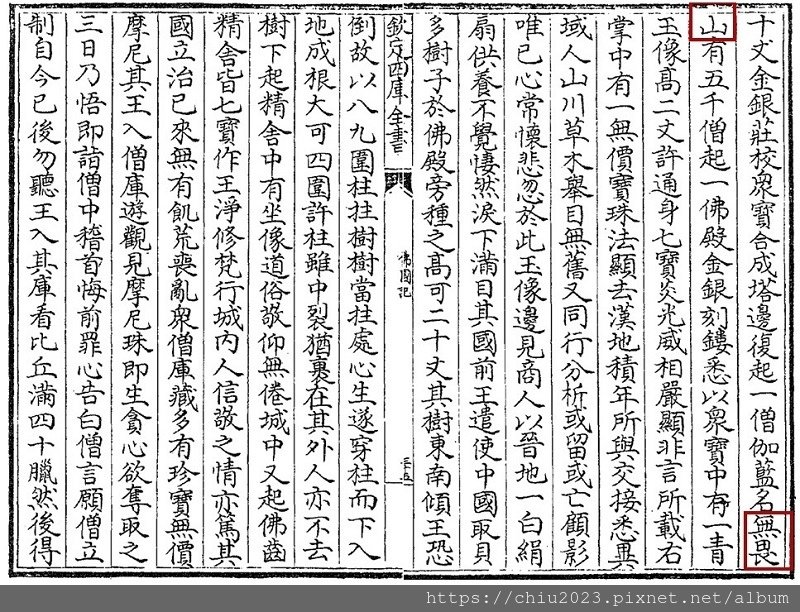 十丈金銀莊校衆寶合成塔邊復起一僧伽藍名無畏
山有五千僧起一佛殿金銀刻鏤悉以衆寶中有一青
玉像高二丈許通身七寶炎光威相嚴顯非言所載右
掌中有一無價寶珠法顯去漢地積年所與交接悉異
域人山川草木舉目無舊又同行分析或留或亡顧影
唯已心常懷悲忽於此玉像邊見商人以晉地一白絹
扇供養不覺悽然淚下滿目其國前王遣使中國取貝
多樹子於佛殿旁種之高可二十丈其樹東南傾王恐
欽定四庫全書
佛國記
倒故以八九圍柱拄樹樹當拄處心生遂穿柱而下入
地成根大可四圍許柱雖中裂猶裹在其外人亦不去
樹下起精舍中有坐像道俗敬仰無倦城中又起佛齒
精舍皆七寶作王淨修梵行城内人信敬之情亦篤其
國立治已來無有飢荒喪亂衆僧庫藏多有珍寶無價
摩尼其王入僧庫遊觀見摩尼珠即生貪心欲奪取之
三日乃悟即詣僧中稽首悔前罪心告白僧言願僧立
制自今已後勿聽王入其庫看比丘滿四十臘然後得
https://chiu2023.pixnet.net/album